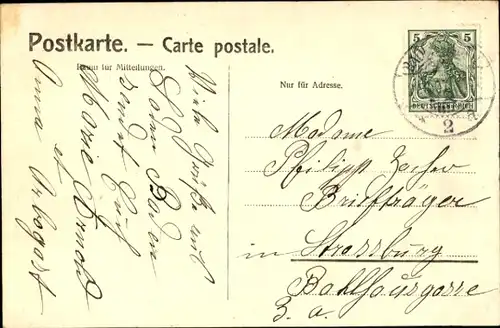 Postkarte. — Carte postale.
Raum für Mitteilungen.
Nur für Adresse.
5 5
DEUTSCHES REICH
BAD
2
Viele Grüße aus
Baden
sendet Euch
Marie Arnold
et
Anna Arbogast
Madame
Philipp Zacher
Briefträger
in Strassburg
Ballhausgasse
Z. a.